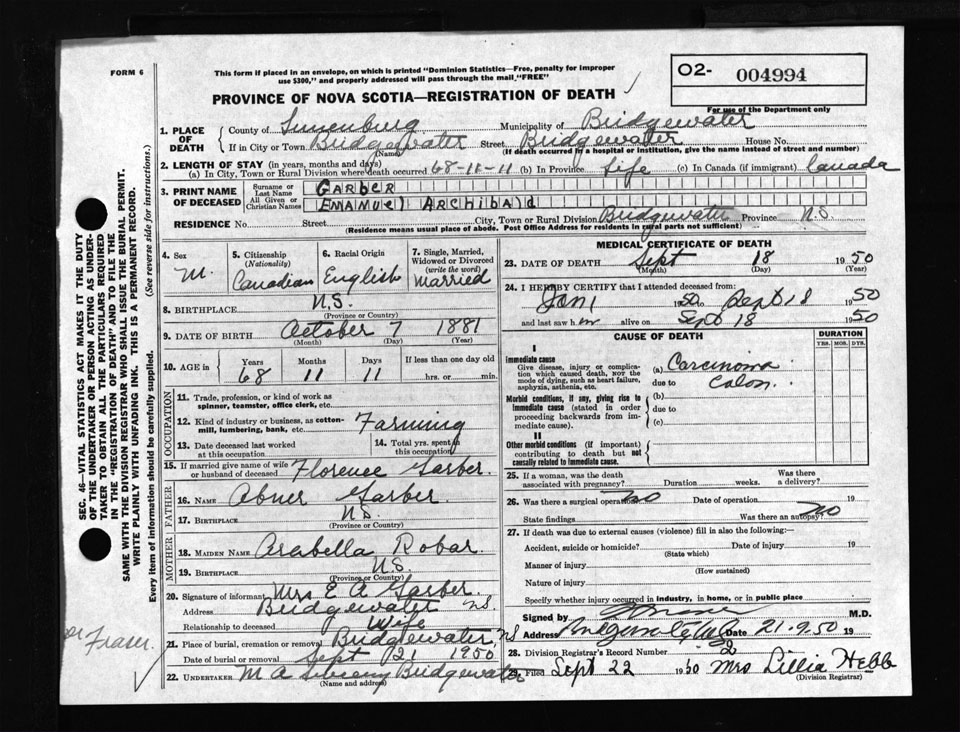 FORM 6
This form if placed in an envelope, on which is printed "Dominion Statistics—Free, penalty for improper
use $300," and properly addressed will pass through the mail, "FREE"
O2- 004994
For use of the Department only
PROVINCE OF NOVA SCOTIA—REGISTRATION OF DEATH
1. PLACE OF DEATH
County of Lunenburg Municipality of Bridgewater
If in City or Town Bridgewater Street Bridgewater House No.
(Name) (If death occurred in a hospital or institution, give the name instead of street and number)
2. LENGTH OF STAY (in years, months and days)
(a) In City, Town or Rural Division where death occurred 68-11-11 (b) In Province Life (c) In Canada (if immigrant) Canada
3. PRINT NAME OF DECEASED
Surname or Last Name GARBER
All Given or Christian Names EMANUEL ARCHIBALD
RESIDENCE No. Street City, Town or Rural Division Bridgewater Province N.S.
(Residence means usual place of abode. Post Office Address for residents in rural parts not sufficient)
4. Sex M.
5. Citizenship (Nationality) Canadian
6. Racial Origin English
7. Single, Married, Widowed or Divorced (write the word) Married
8. BIRTHPLACE N.S.
(Province or Country)
9. DATE OF BIRTH October 7 1881
(Month) (Day) (Year)
10. AGE in Years 68 Months 11 Days 11 If less than one day old hrs. or min.
OCCUPATION
11. Trade, profession, or kind of work as spinner, teamster, office clerk, etc.
12. Kind of industry or business, as cotton-mill, lumbering, bank, etc. Farming
13. Date deceased last worked at this occupation
14. Total yrs. spent in this occupation
15. If married give name of wife or husband of deceased Florence Garber.
FATHER
16. NAME Abner Garber.
17. BIRTHPLACE N.S.
(Province or Country)
MOTHER
18. MAIDEN NAME Arabella Robar.
19. BIRTHPLACE N.S.
(Province or Country)
20. Signature of informant Mrs E A Garber.
Address Bridgewater NS.
Relationship to deceased Wife
21. Place of burial, cremation or removal Bridgewater, NS
Date of burial or removal Sept 21 1950
22. UNDERTAKER M A Bridgewater
(Name and address)
MEDICAL CERTIFICATE OF DEATH
23. DATE OF DEATH Sept 18 1950
(Month) (Day) (Year)
24. I HEREBY CERTIFY that I attended deceased from:
Jan 1 1950 to Sept 18 1950
and last saw him alive on Sept 18 1950
CAUSE OF DEATH
DURATION
YRS. MOS. DYS.
I
Immediate cause
Give disease, injury or complication which caused death, NOT the mode of dying, such as heart failure, asphyxia, asthenia, etc.
(a) Carcinoma
due to Colon.
Morbid conditions, if any, giving rise to immediate cause (stated in order proceeding backwards from immediate cause).
(b)
due to
(c)
II
Other morbid conditions (if important) contributing to death but not causally related to immediate cause.
25. If a woman, was the death associated with pregnancy? Duration weeks. Was there a delivery?
26. Was there a surgical operation? no Date of operation 19
State findings Was there an autopsy? no
27. If death was due to external causes (violence) fill in also the following:—
Accident, suicide or homicide? Date of injury 19
(State which)
Manner of injury
(How sustained)
Nature of injury
Specify whether injury occurred in industry, in home, or in public place
Signed by M.D.
Address Date 21-9-50 19
28. Division Registrar's Record Number 2
29. Filed Sept 22 1950 Mrs Lillia Hebb
(Division Registrar)
SEC. 46—VITAL STATISTICS ACT MAKES IT THE DUTY
OF THE UNDERTAKER OR PERSON ACTING AS UNDER-
TAKER TO OBTAIN ALL THE PARTICULARS REQUIRED
IN THE "REGISTRATION OF DEATH" AND TO FILE THE
SAME WITH THE DIVISION REGISTRAR WHO SHALL ISSUE THE BURIAL PERMIT.
WRITE PLAINLY WITH UNFADING INK. THIS IS A PERMANENT RECORD.
Every item of information should be carefully supplied. (See reverse side for instructions.)
Fraser